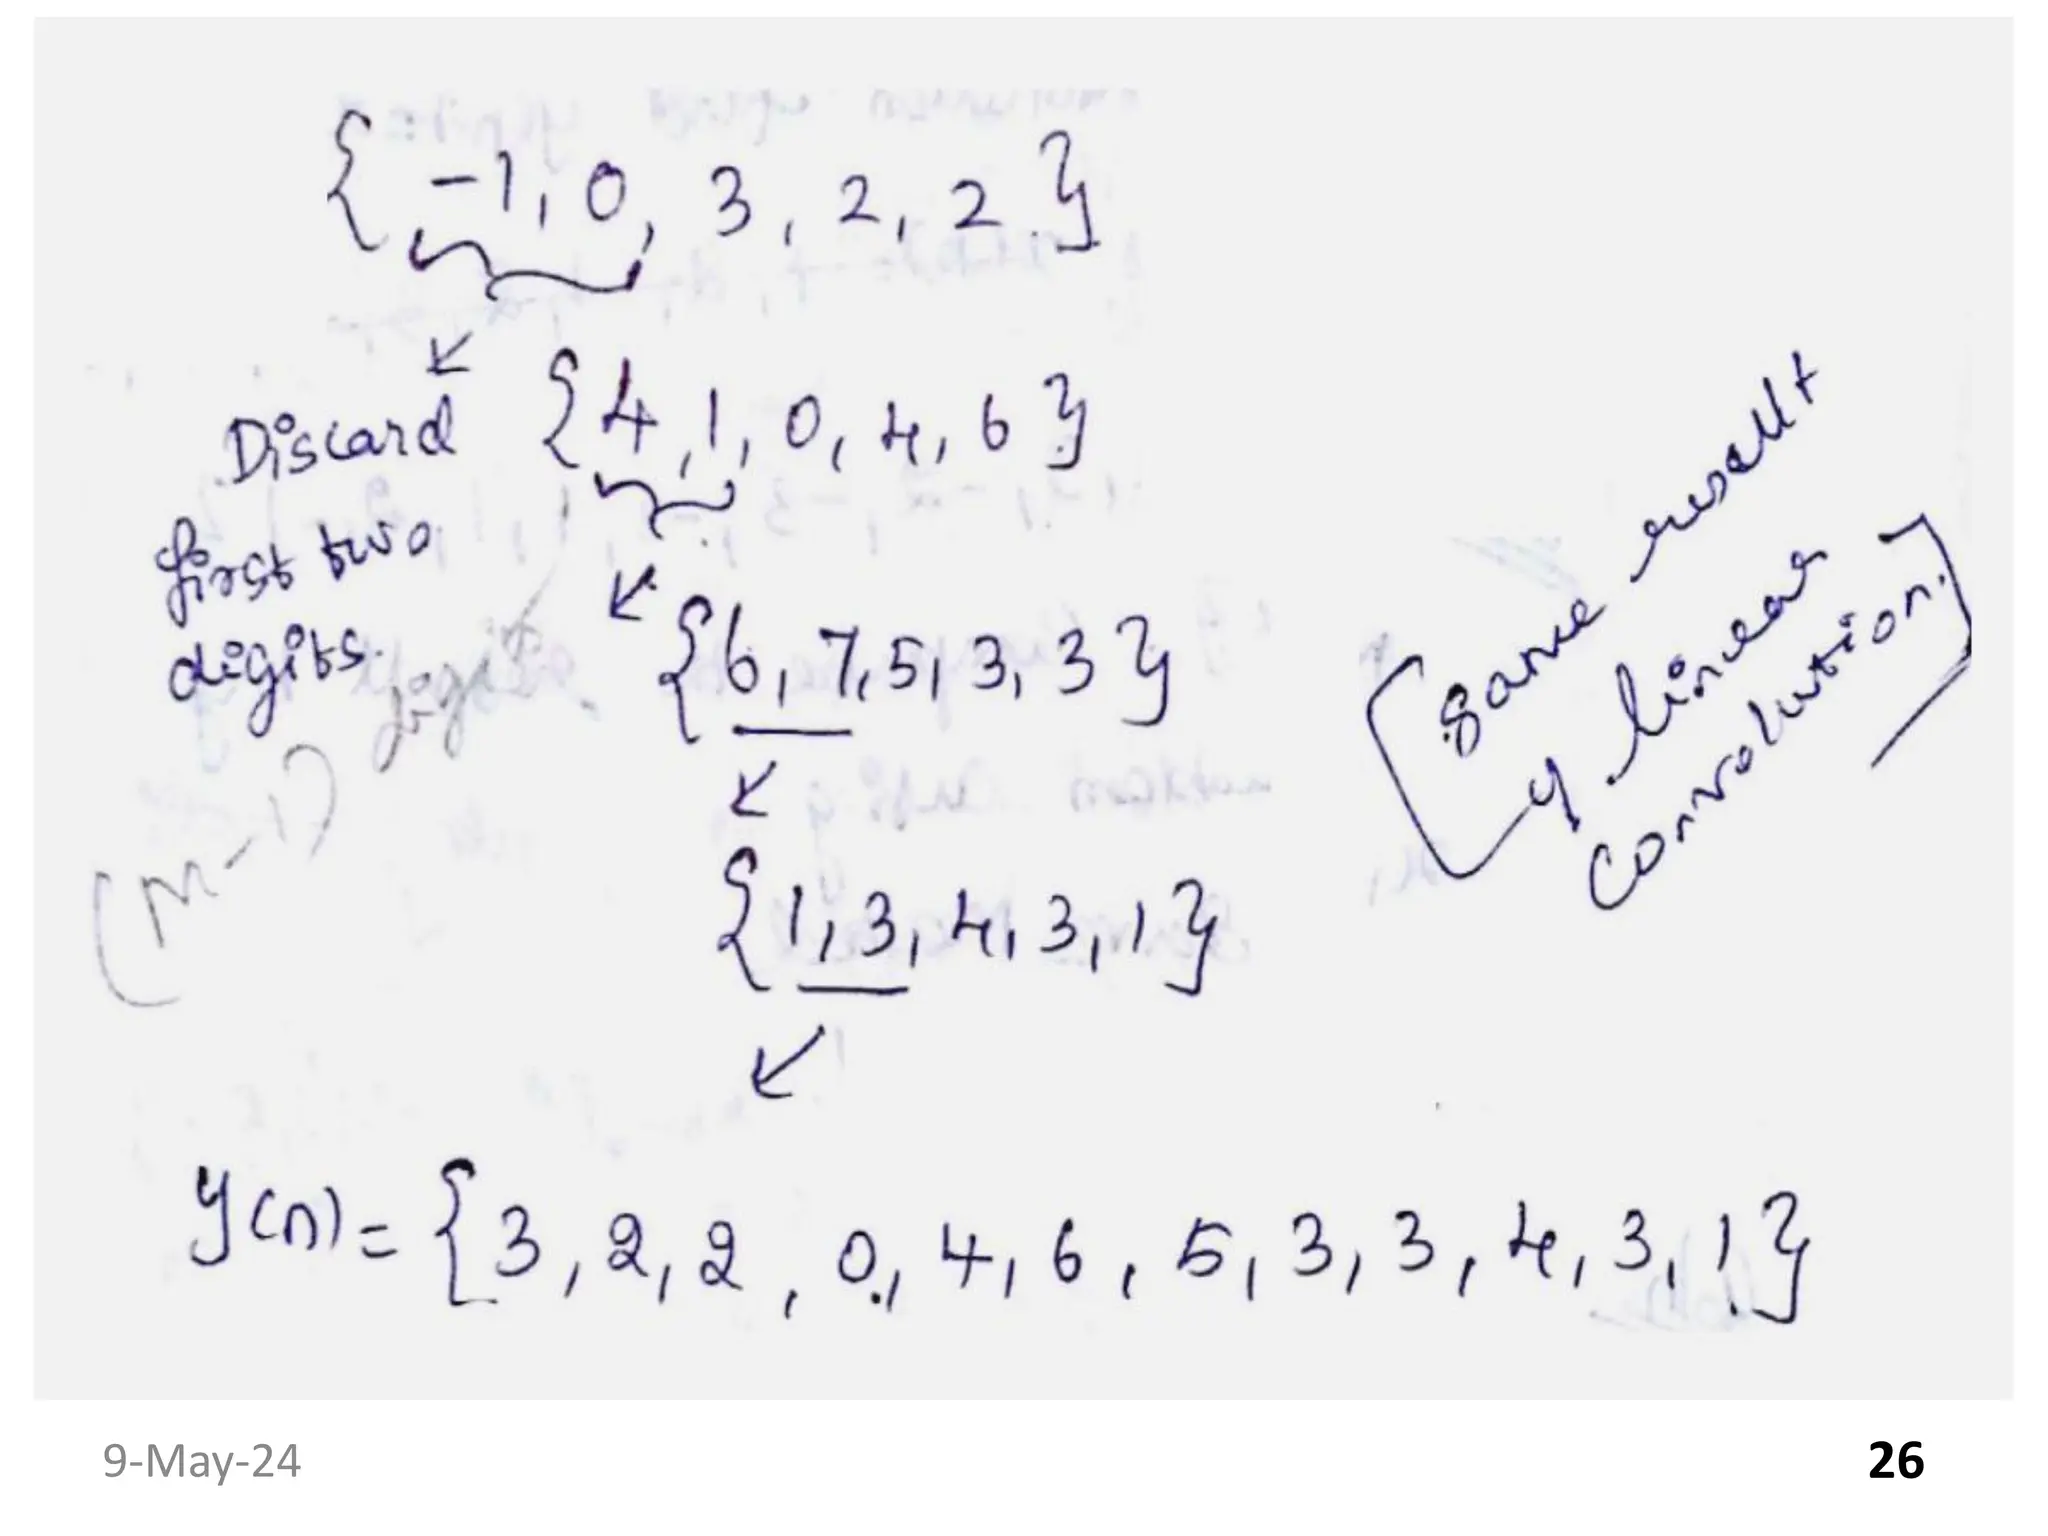 { -1, 0, 3, 2, 2 }
Discard
first two
digits.
(M-1) digits
{ 4, 1, 0, 4, 6 }
{ 6, 7, 5, 3, 3 }
{ 1, 3, 4, 3, 1 }
[ same result
of linear
convolution. ]
y(n) = { 3, 2, 2, 0, 4, 6, 5, 3, 3, 4, 3, 1 }
9-May-24
26